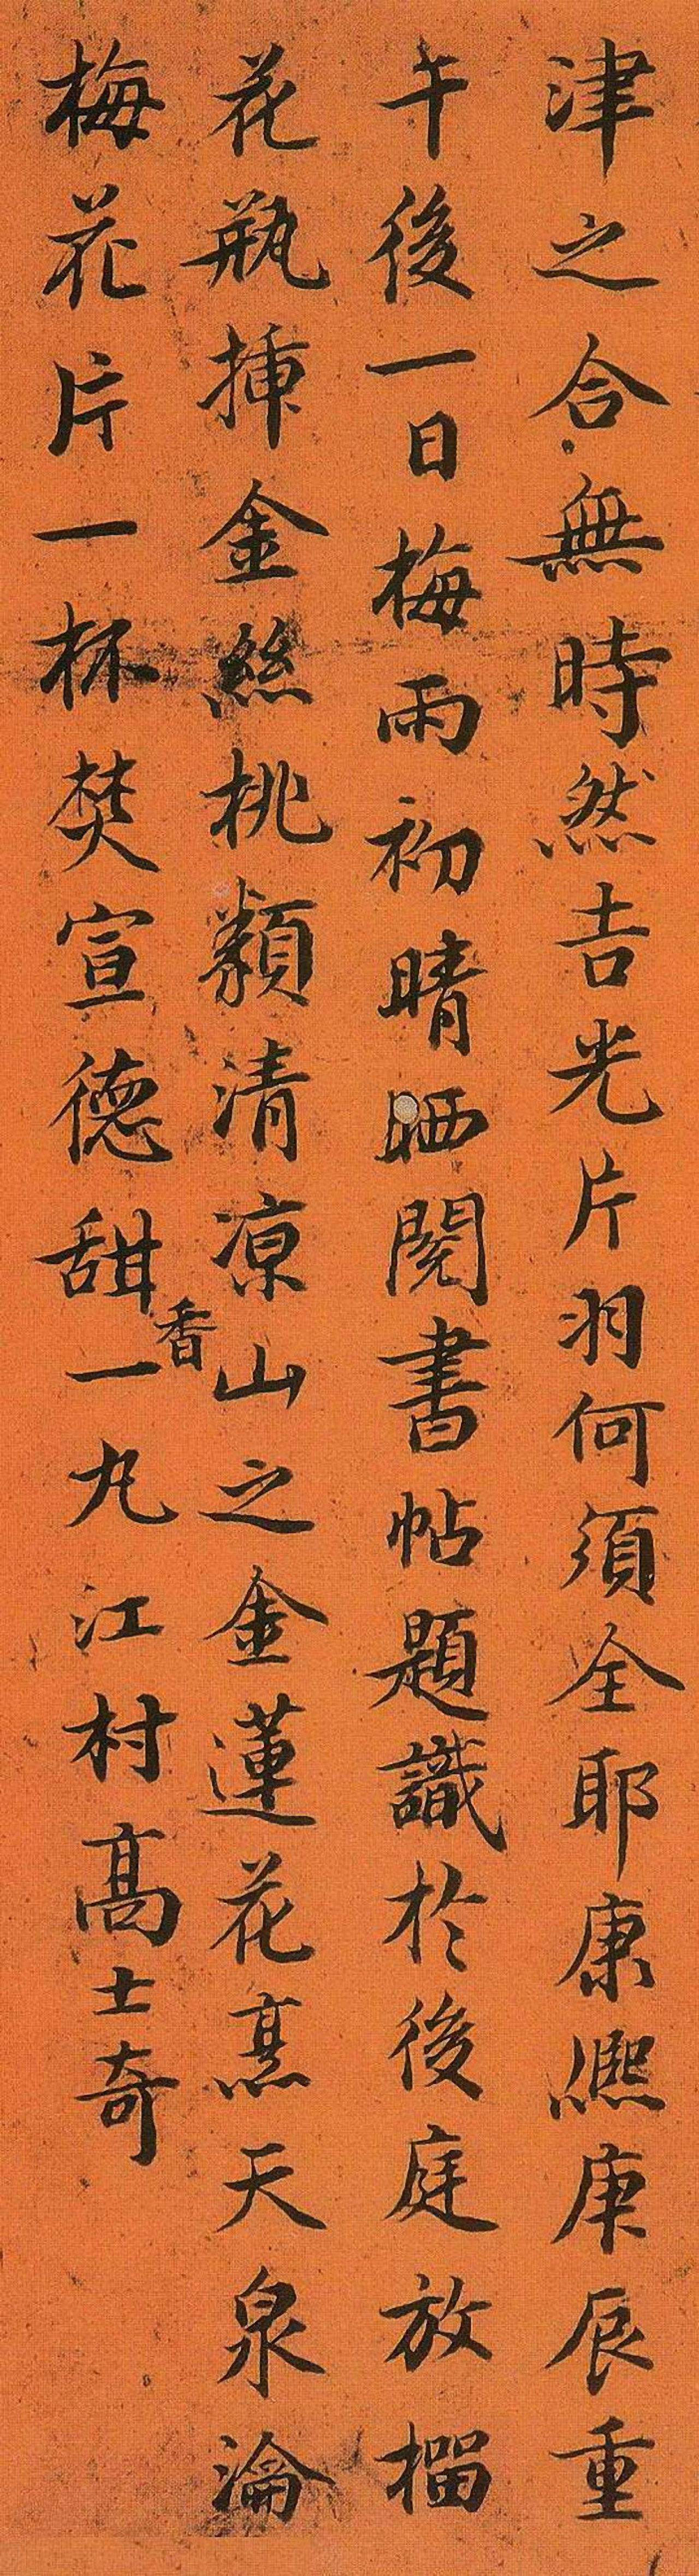 津之合無時然吉光片羽何須全耶康熙庚辰重
午後一日梅雨初晴晒閱書帖題識於後庭放榴
花瓶插金絲桃類清凉山之金蓮花烹天泉瀹
梅花片一杯焚宣德甜香一丸江村高士奇